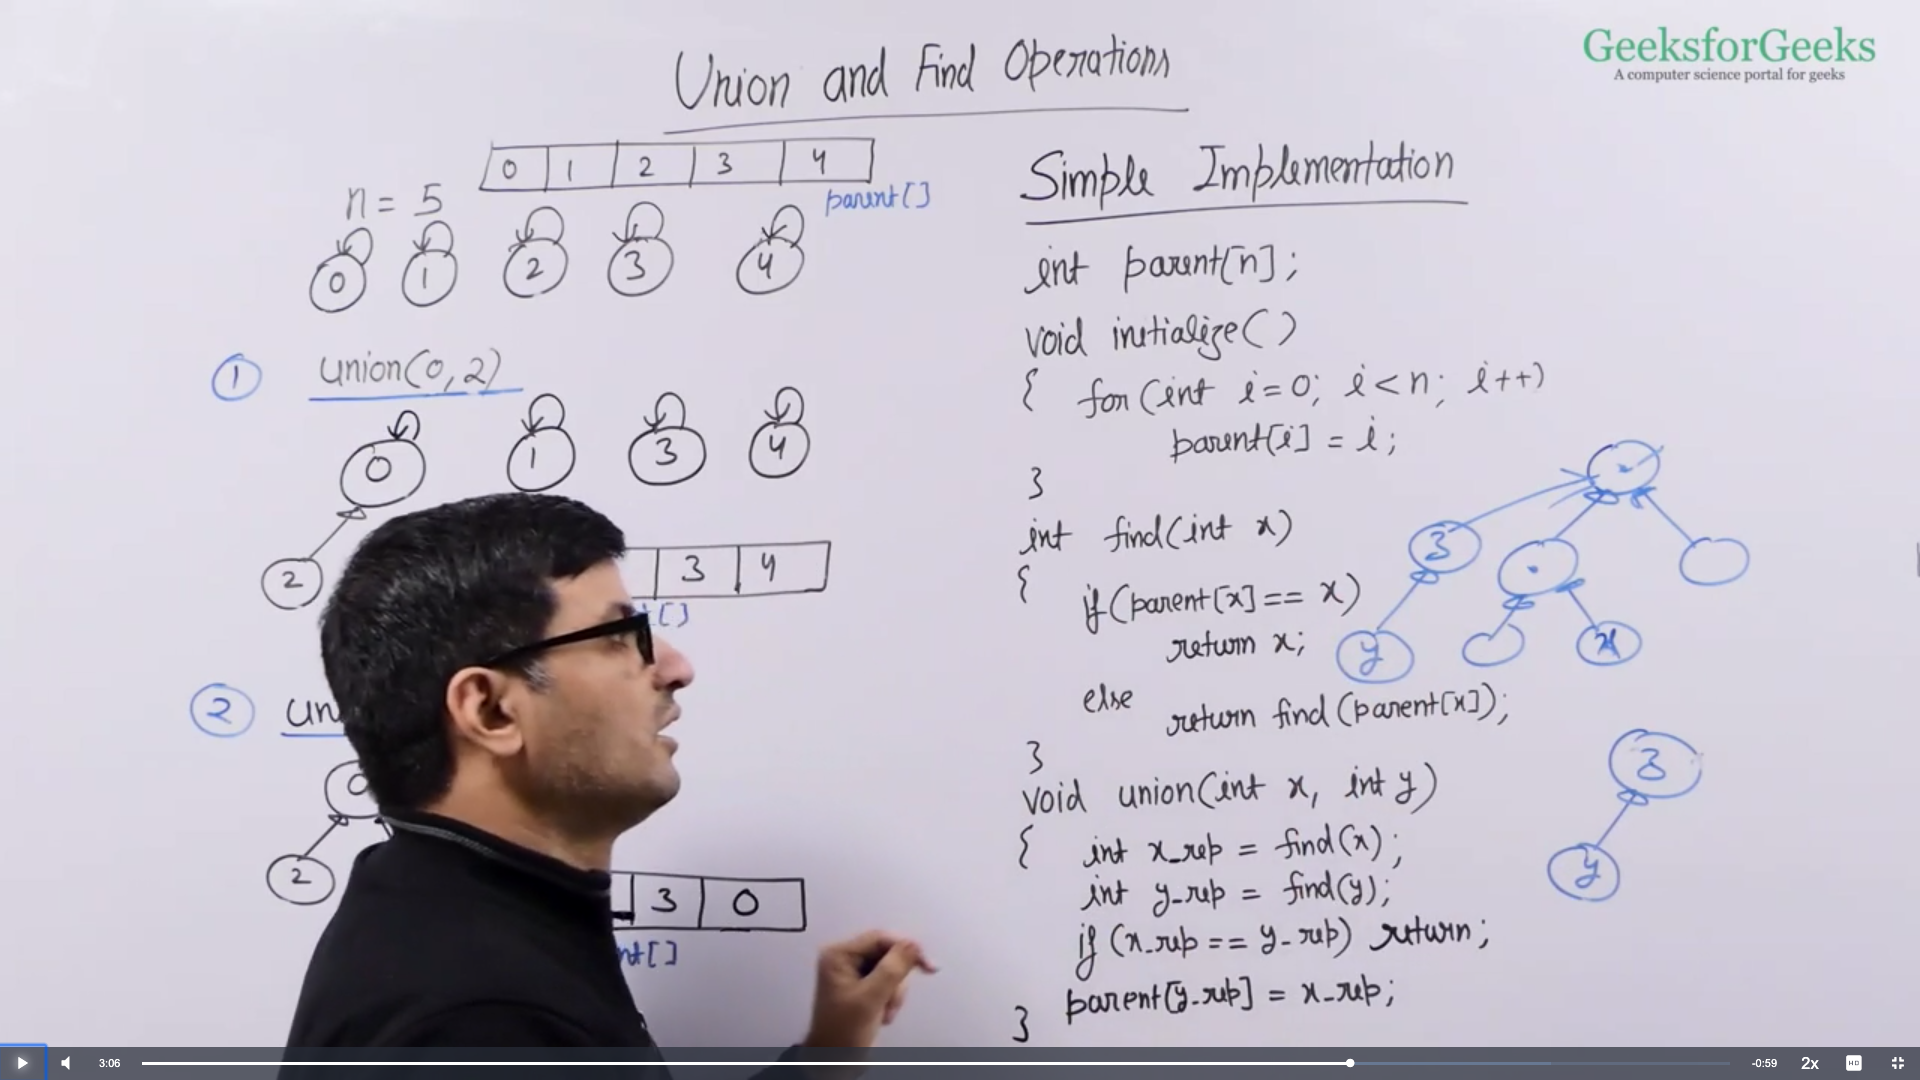 Union and Find Operations
GeeksforGeeks
A computer science portal for geeks
0 1 2 3 4
parent[]
n = 5
0 1 2 3 4
1 union(0,2)
0 1 3 4
2
3 4
[]
2
0
2
3 0
[]
Simple Implementation
int parent[n];
void initialize()
{ for(int i=0; i<n; i++)
parent[i] = i;
}
int find(int x)
{ if(parent[x] == x)
return x;
else
return find(parent[x]);
}
void union(int x, int y)
{ int x_rep = find(x);
int y_rep = find(y);
if (x_rep == y_rep) return;
parent[y_rep] = x_rep;
}
3
y x
3
y
3:06 -0:59 2x HD